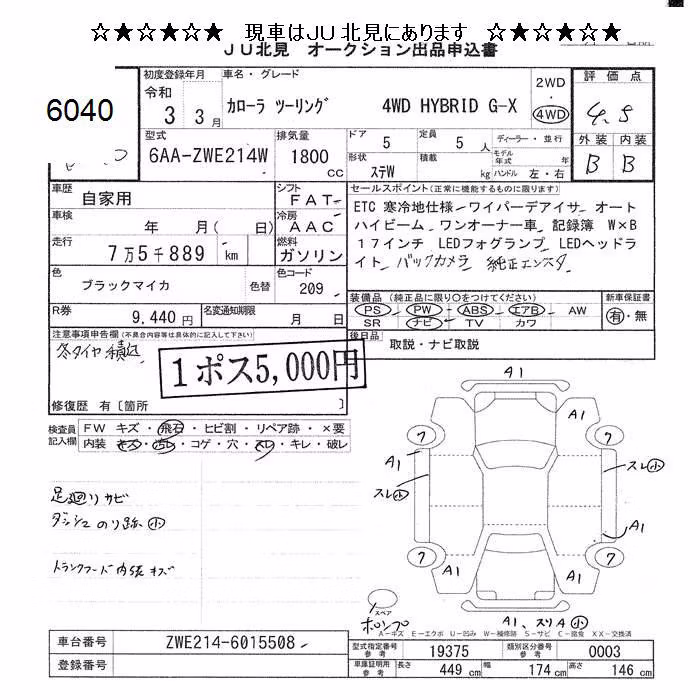 ☆★☆★☆★ 現車はＪＵ北見にあります ☆★☆★☆★
ＪＵ北見 オークション出品申込書
6040
初度登録年月
令和
3 3月
車名・グレード
カローラ ツーリング 4WD HYBRID G-X
2WD
・
4WD
評価点
4.5
外装 内装
B B
型式
6AA-ZWE214W
排気量
1800
CC
ドア
5
定員
5
人
ディーラー・並行
モデル年式 年
形状
ステW
積載
kg
ハンドル 左・右
車歴
自家用
シフト
FAT
車検
年 月( 日)
冷房
AAC
走行
7万5千889 km
燃料
ガソリン
色
ブラックマイカ
色替
色コード
209
R券
9,440円
名変通知期限
月 日
セールスポイント(正常に機能するものに限ります)
ETC 寒冷地仕様 ワイパーデアイサ オート
ハイビーム ワンオーナー車 記録簿 W×B
17インチ LEDフォグランプ LEDヘッドラ
イト バックカメラ 純正エンスタ
装備品 (純正品に限り○をつけてください)
新車保証書
PS ・ PW ・ ABS ・ エアB ・ AW
SR ナビ ・ TV カワ
有・無
後日品
取説・ナビ取説
注意事項申告欄(不具合内容等は具体的に記入して下さい)
冬タイヤ積込
1ポス5,000円
修復歴 有〔箇所 〕
検査員記入欄
FW キズ・飛石・ヒビ割・リペア跡・×要
内装 キズ・汚レ・コゲ・穴・スレ・キレ・破レ
足廻りサビ
ダッシュのり跡小
トランクフード内張キズ
A1
A1
ワ
ワ
A1
スレ小
スレ小
A1
ワ
ワ
A1
A1
スペア
ポンプ
A1、スリA小
A-キズ E-エクボ U-凹み W-補修跡 S-サビ C-腐食 XX-交換済
車台番号
ZWE214-6015508
登録番号
型式指定番号
参考
19375
類別区分番号
参考
0003
車庫証明用
参考
長さ
449 cm
幅
174 cm
高さ
146 cm